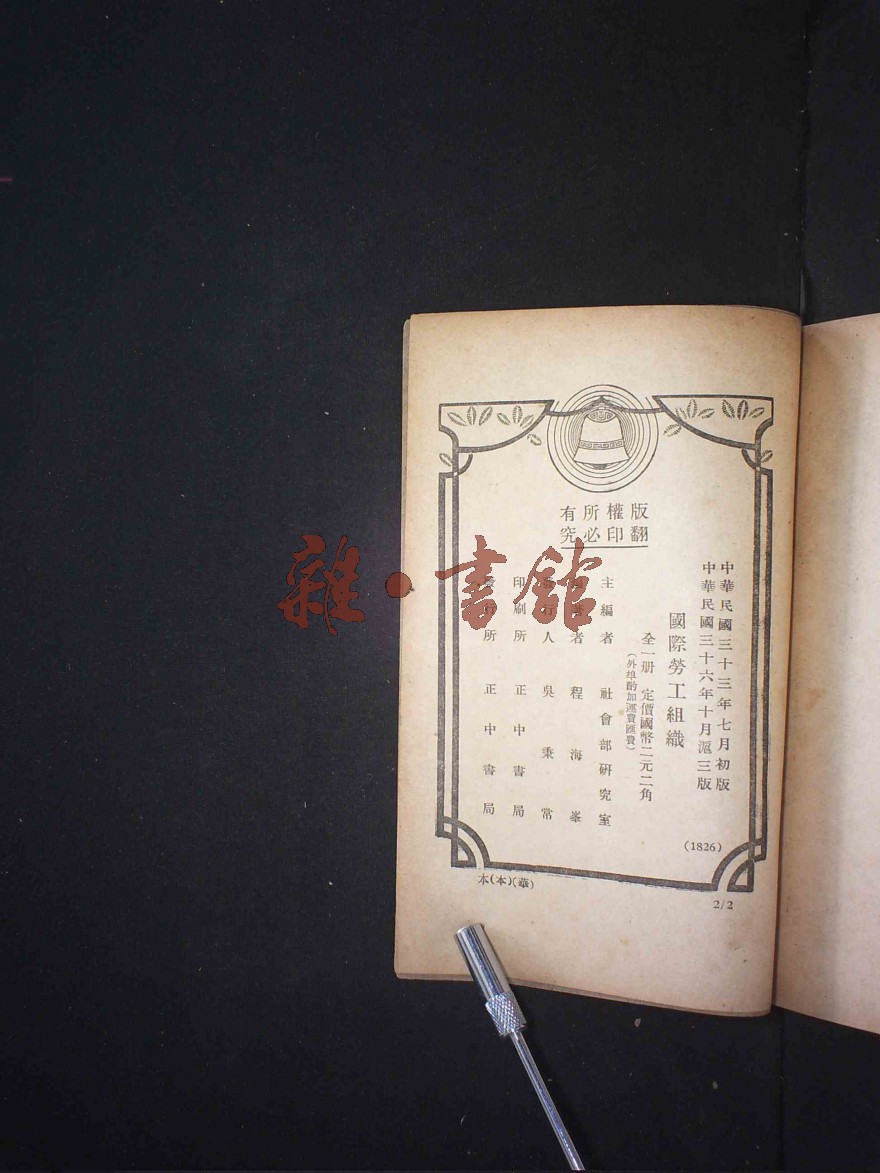 版權所有
翻印必究
中華民國三十三年七月初版
中華民國三十六年十月滬三版
國際勞工組織
全一册 定價國幣二元二角
(外埠酌加運費匯費)
主編者 社會部研究室
者 程海峯
行人 吳秉常
印刷所 正中書局
行所 正中書局
(1826)
本(本)(華)
2/2
雜·書館